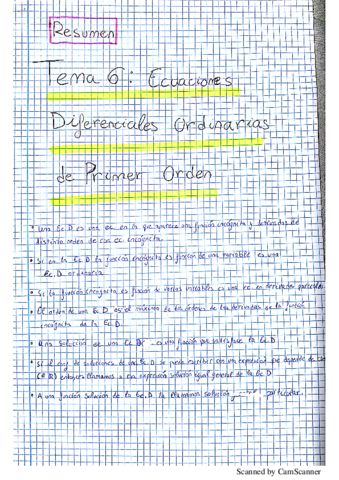 Resumen
Tema 6: Ecuaciones
Diferenciales Ordinarias
de Primer Orden
• Una Ec.D es una ec. en la que aparece una función incógnita y derivadas de
distinto orden de esa incógnita.
• Si en la Ec.D la función incógnita es función de una variable es una
Ec.D ordinaria.
• Si la función incógnita es función de varias variables es una ec. en derivadas parciales.
• El orden de una Ec.D es el máximo de los órdenes de las derivadas de la función
incógnita de la Ec.D.
• Una solución de una Ec.D es una función que satisface la Ec.D.
• Si el conj. de soluciones de una Ec.D se puede escribir con una expresión que depende de
llamamos a esa expresión solución general de la Ec.D
• A una función solución de la Ec.D la llamamos solución particular.
Scanned by CamScanner